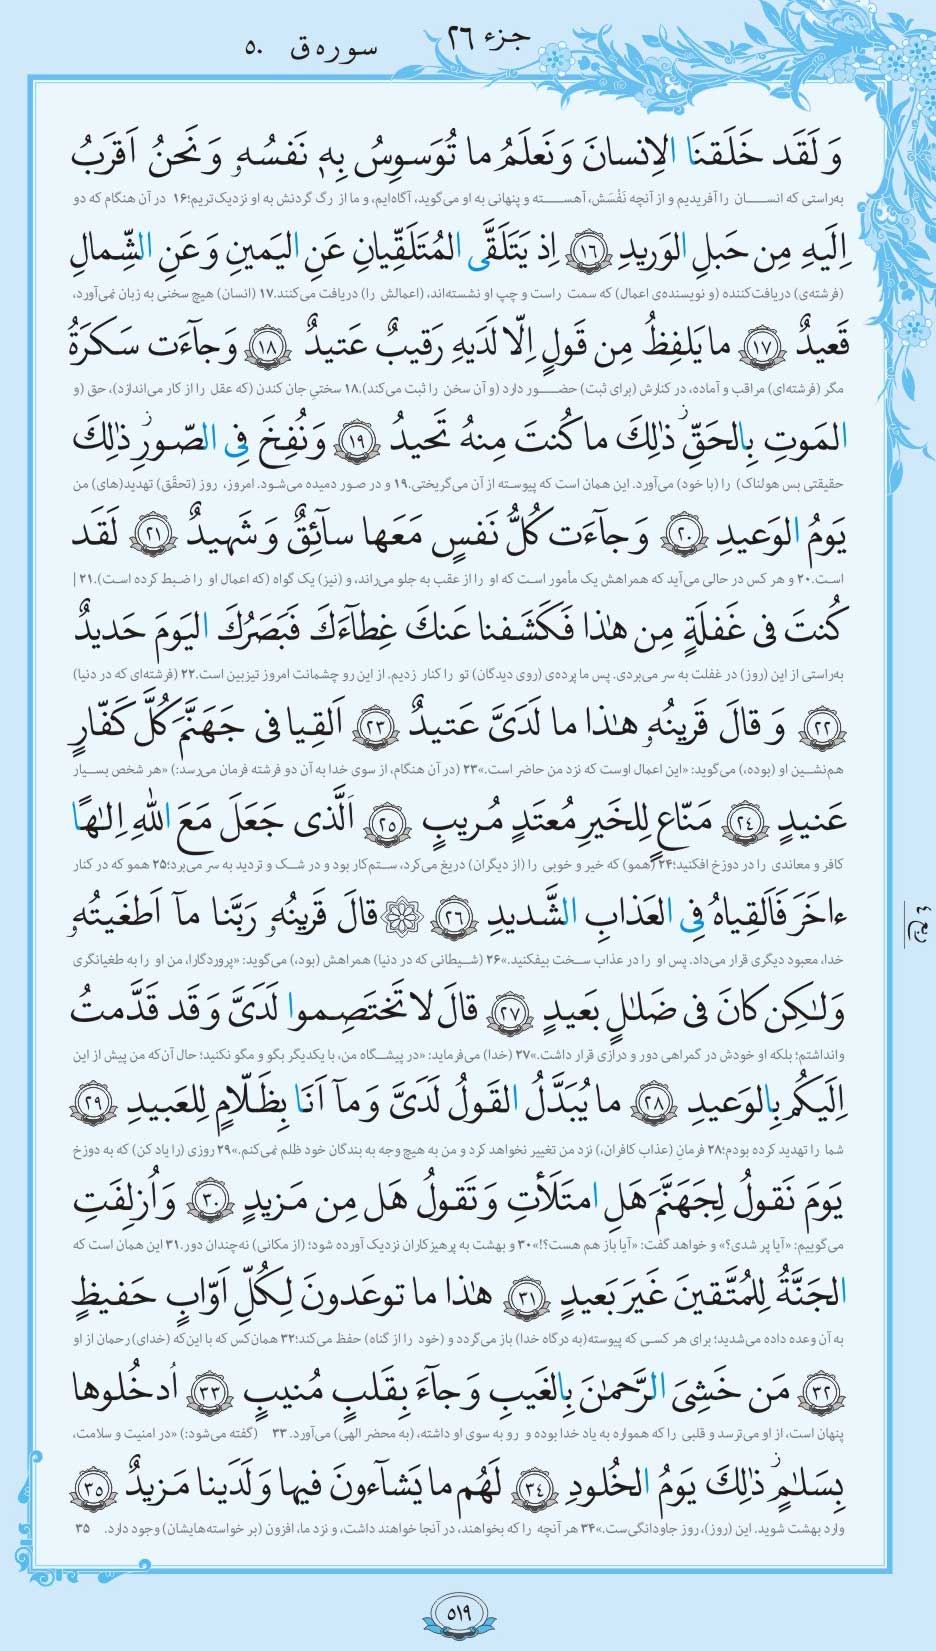 جزء ۲۶
سوره ق ۵۰
وَ لَقَد خَلَقنَا الاِنسانَ وَ نَعلَمُ ما تُوَسوِسُ بِه۪ نَفسُهۥ وَ نَحنُ اَقرَبُ
به‌راستی که انسان را آفریدیم و از آنچه نَفْسَش، آهسته و پنهانی به او می‌گوید، آگاه‌ایم، و ما از رگ گردنش به او نزدیک‌تریم؛۱۶ در آن هنگام که دو
اِلَیهِ مِن حَبلِ الوَریدِ ﴿۱۶﴾ اِذ یَتَلَقَّی المُتَلَقِّیانِ عَنِ الیَمینِ وَ عَنِ الشِّمالِ
(فرشته‌ی) دریافت‌کننده (و نویسنده‌ی اعمال) که سمت راست و چپ او نشسته‌اند، (اعمالش را) دریافت می‌کنند.۱۷ (انسان) هیچ سخنی به زبان نمی‌آورد،
قَعیدٌ ﴿۱۷﴾ ما یَلفِظُ مِن قَولٍ اِلّا لَدَیهِ رَقیبٌ عَتیدٌ ﴿۱۸﴾ وَ جآءَت سَکرَةُ
مگر (فرشته‌ای) مراقب و آماده، در کنارش (برای ثبت) حضور دارد (و آن سخن را ثبت می‌کند).۱۸ سختیِ جان کندن (که عقل را از کار می‌اندازد)، حق (و
المَوتِ بِالحَقِّ ز ذٰلِکَ ما کُنتَ مِنهُ تَحیدُ ﴿۱۹﴾ وَ نُفِخَ فِی الصّورِ ز ذٰلِکَ
حقیقتی بس هولناک) را (با خود) می‌آورد. این همان است که پیوسته از آن می‌گریختی.۱۹ و در صور دمیده می‌شود. امروز، روز (تحقّق) تهدید(های) من
یَومُ الوَعیدِ ﴿۲۰﴾ وَ جآءَت کُلُّ نَفسٍ مَعَها سآئِقٌ وَ شَهیدٌ ﴿۲۱﴾ لَقَد
است.۲۰ و هر کس در حالی می‌آید که همراهش یک مأمور است که او را از عقب به جلو می‌راند، و (نیز) یک گواه (که اعمال او را ضبط کرده است).۲۱ |
کُنتَ فی غَفلَةٍ مِن هٰذا فَکَشَفنا عَنکَ غِطآءَکَ فَبَصَرُکَ الیَومَ حَدیدٌ
به‌راستی از این (روز) در غفلت به سر می‌بردی. پس ما پرده‌ی (روی دیدگان) تو را کنار زدیم. از این رو چشمانت امروز تیزبین است.۲۲ (فرشته‌ای که در دنیا)
﴿۲۲﴾ وَ قالَ قَرینُهۥ هٰذا ما لَدَیَّ عَتیدٌ ﴿۲۳﴾ اَلقِیا فی جَهَنَّمَ کُلَّ کَفّارٍ
هم‌نشین او (بوده،) می‌گوید: «این اعمال اوست که نزد من حاضر است.»۲۳ (در آن هنگام، از سوی خدا به آن دو فرشته فرمان می‌رسد:) «هر شخص بسیار
عَنیدٍ ﴿۲۴﴾ مَنّاعٍ لِلخَیرِ مُعتَدٍ مُریبٍ ﴿۲۵﴾ اَلَّذی جَعَلَ مَعَ اللهِ اِلٰهًا
کافر و معاندی را در دوزخ افکنید؛۲۴ (همو) که خیر و خوبی را (از دیگران) دریغ می‌کرد، ستم‌کار بود و در شک و تردید به سر می‌برد؛۲۵ همو که در کنار
ءاخَرَ فَاَلقِیاهُ فِی العَذابِ الشَّدیدِ ﴿۲۶﴾ قالَ قَرینُهۥ رَبَّنا مآ اَطغَیتُهۥ
خدا، معبود دیگری قرار می‌داد. پس او را در عذاب سخت بیفکنید.»۲۶ (شیطانی که در دنیا) همراهش (بود،) می‌گوید: «پروردگارا، من او را به طغیانگری
ربع ۴
وَلٰکِن کانَ فی ضَلٰلٍ بَعیدٍ ﴿۲۷﴾ قالَ لا تَختَصِموا لَدَیَّ وَ قَد قَدَّمتُ
وانداشتم؛ بلکه او خودش در گمراهی دور و درازی قرار داشت.»۲۷ (خدا) می‌فرماید: «در پیشگاه من، با یکدیگر بگو و مگو نکنید؛ حال آن‌که من پیش از این
اِلَیکُم بِالوَعیدِ ﴿۲۸﴾ ما یُبَدَّلُ القَولُ لَدَیَّ وَ مآ اَنَا بِظَلّامٍ لِلعَبیدِ ﴿۲۹﴾
شما را تهدید کرده بودم؛۲۸ فرمانِ (عذاب کافران،) نزد من تغییر نخواهد کرد و من به هیچ وجه به بندگان خود ظلم نمی‌کنم.»۲۹ روزی (را یاد کن) که به دوزخ
یَومَ نَقولُ لِجَهَنَّمَ هَلِ امتَلَأتِ وَ تَقولُ هَل مِن مَزیدٍ ﴿۳۰﴾ وَ اُزلِفَتِ
می‌گوییم: «آیا پر شدی؟» و خواهد گفت: «آیا باز هم هست؟!»۳۰ و بهشت به پرهیزکاران نزدیک آورده شود؛ (از مکانی) نه‌چندان دور.۳۱ این همان است که
الجَنَّةُ لِلمُتَّقینَ غَیرَ بَعیدٍ ﴿۳۱﴾ هٰذا ما توعَدونَ لِکُلِّ اَوّابٍ حَفیظٍ
به آن وعده داده می‌شدید؛ برای هر کسی که پیوسته(به درگاه خدا) باز می‌گردد و (خود را از گناه) حفظ می‌کند؛۳۲ همان‌کس که با این‌که (خدای) رحمان از او
﴿۳۲﴾ مَن خَشِیَ الرَّحمٰنَ بِالغَیبِ وَ جآءَ بِقَلبٍ مُنیبٍ ﴿۳۳﴾ اُدخُلوها
پنهان است، از او می‌ترسد و قلبی را که همواره به یاد خدا بوده و رو به سوی او داشته، (به محضر الهی) می‌آورد. ۳۳ (گفته می‌شود:) «در امنیت و سلامت،
بِسَلٰمٍ ز ذٰلِکَ یَومُ الخُلودِ ﴿۳۴﴾ لَهُم ما یَشآءونَ فیها وَ لَدَینا مَزیدٌ ﴿۳۵﴾
وارد بهشت شوید. این (روز)، روز جاودانگی‌ست.»۳۴ هر آنچه را که بخواهند، در آنجا خواهند داشت، و نزد ما، افزون (بر خواسته‌هایشان) وجود دارد. ۳۵
۵۱۹